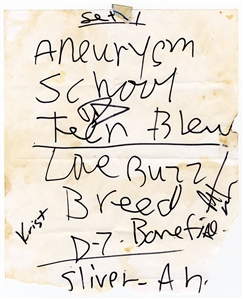 Set 1
Aneurysm
School
Teen Blew
Love Buzz
Breed
Krist
D-7. Bonefire
Sliver - Ah.